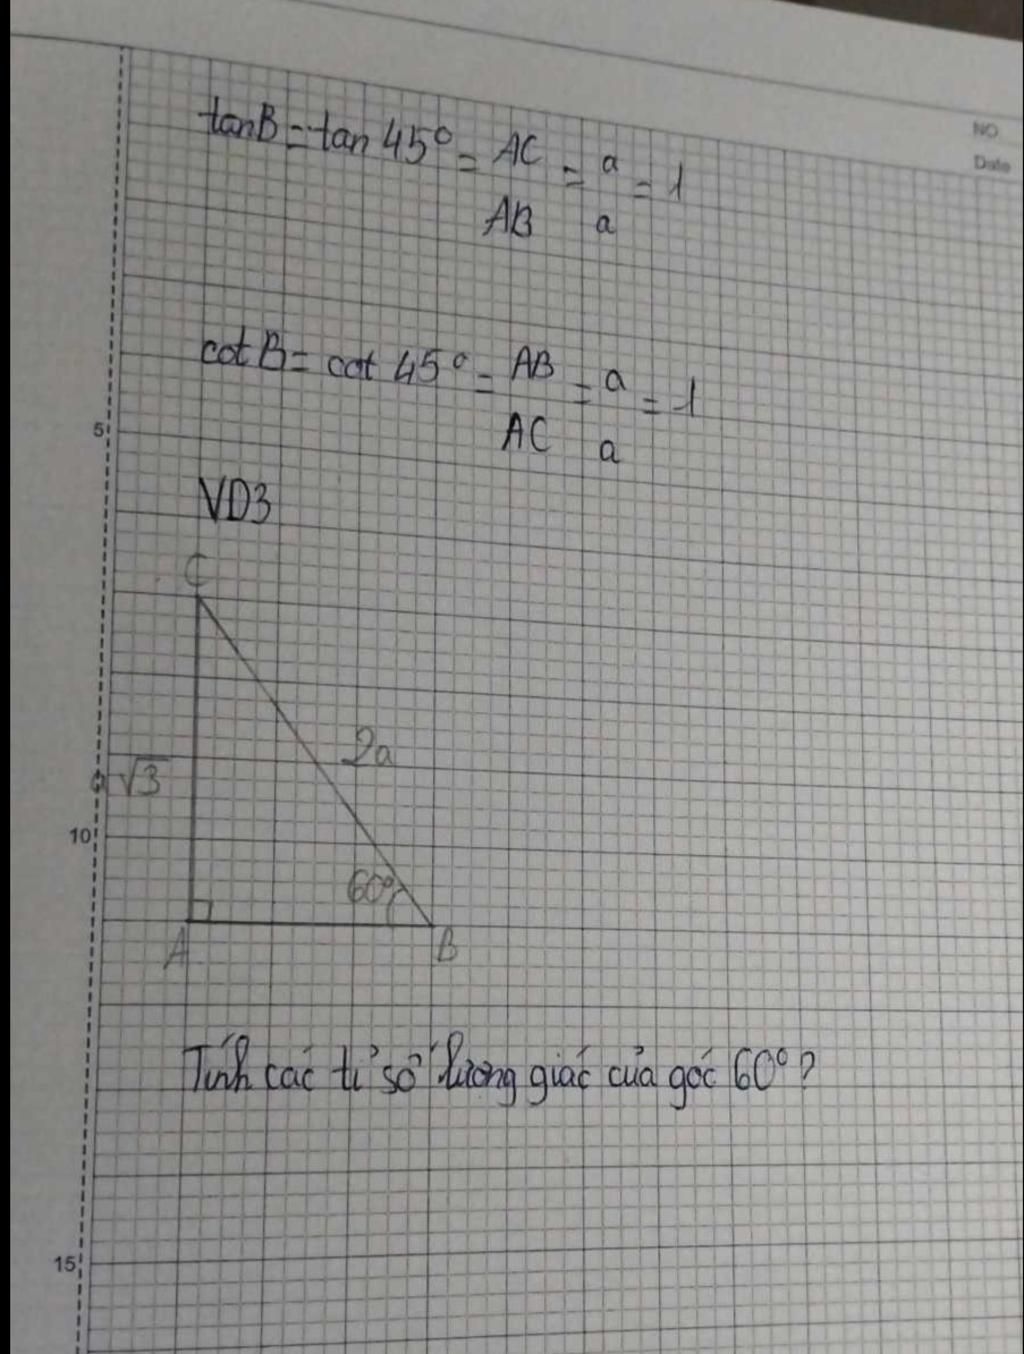 NO.
Date
tanB = tan 45° = AC = a = 1
AB a
cot B = cot 45° = AB = a = 1
AC a
5
VD3
C
2a
a√3
10
60°
A B
Tính các tỉ số lượng giác của góc 60°?
15